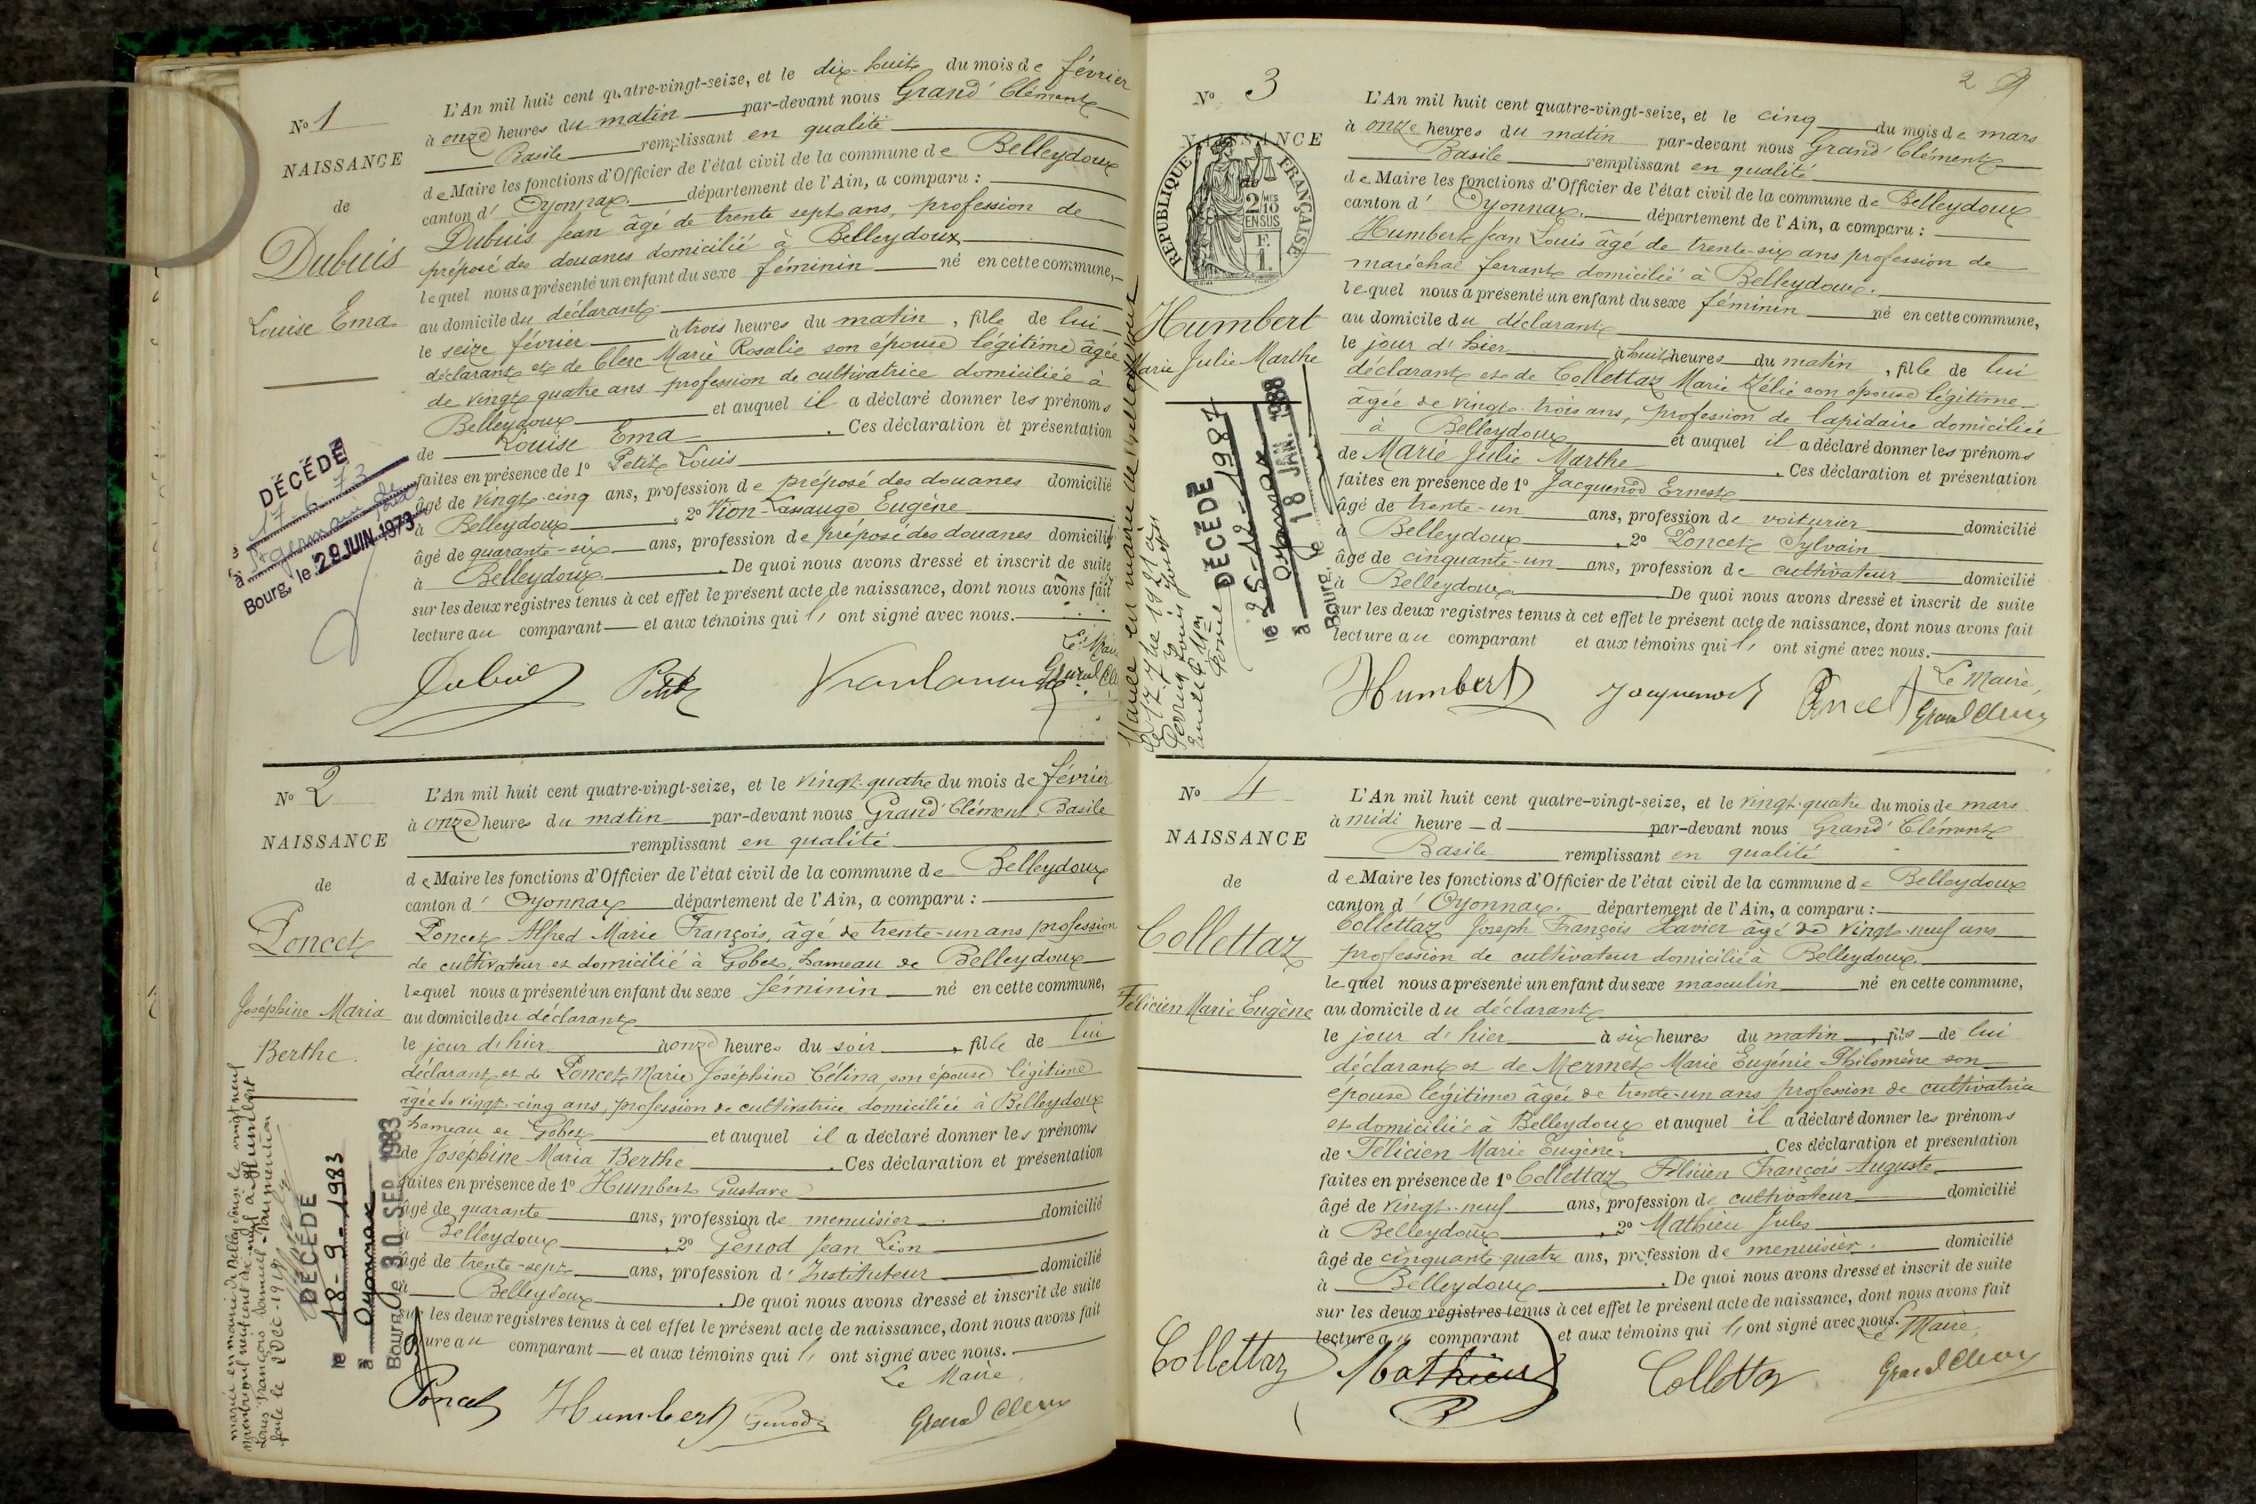 N° 1
NAISSANCE
de
Dubuis
Louise Ema
L'An mil huit cent quatre-vingt-seize, et le dix-huit du mois de février
à onze heures du matin par-devant nous Grand' Clément
Basile remplissant en qualité
de Maire les fonctions d'Officier de l'état civil de la commune de Belleydoux
canton d' Oyonnax département de l'Ain, a comparu :
Dubuis Jean âgé de trente sept ans, profession de
préposé des douanes domicilié à Belleydoux
lequel nous a présenté un enfant du sexe féminin né en cette commune,
au domicile du déclarant
le seize février à trois heures du matin, fille de lui
déclarant et de Clerc Marie Rosalie son épouse légitime âgée
de vingt quatre ans profession de cultivatrice domiciliée à
Belleydoux et auquel il a déclaré donner les prénoms
de Louise Ema. Ces déclaration et présentation
faites en présence de 1° Petit Louis
âgé de vingt-cinq ans, profession de préposé des douanes domicilié
à Belleydoux, 2° Vion-Lassauge Eugène
âgé de quarante-six ans, profession de préposé des douanes domicilié
à Belleydoux. De quoi nous avons dressé et inscrit de suite
sur les deux registres tenus à cet effet le présent acte de naissance, dont nous avons fait
lecture au comparant et aux témoins qui ont signé avec nous.
DÉCÉDÉ
17-6 73
à St germain
Bourg, le 29 JUIN 1973
Le Maire
Dubuis Petit
N° 2
NAISSANCE
de
Poncet
Joséphine Maria
Berthe.
L'An mil huit cent quatre-vingt-seize, et le vingt-quatre du mois de février
à onze heures du matin par-devant nous Grand' Clément Basile
remplissant en qualité
de Maire les fonctions d'Officier de l'état civil de la commune de Belleydoux
canton d' Oyonnax département de l'Ain, a comparu :
Poncet Alfred Marie François, âgé de trente-un ans profession
de cultivateur et domicilié à Gobet, hameau de Belleydoux
lequel nous a présenté un enfant du sexe féminin né en cette commune,
au domicile du déclarant
le jour d'hier à onze heures du soir, fille de lui
déclarant et de Poncet Marie Joséphine Célina, son épouse légitime
âgée de vingt-cinq ans, profession de cultivatrice domiciliée à Belleydoux
hameau de Gobet et auquel il a déclaré donner les prénoms
de Joséphine Maria Berthe. Ces déclaration et présentation
faites en présence de 1° Humbert Gustave
âgé de quarante ans, profession de menuisier domicilié
à Belleydoux, 2° Genod Jean Léon
âgé de trente-sept ans, profession d' Instituteur domicilié
à Belleydoux. De quoi nous avons dressé et inscrit de suite
sur les deux registres tenus à cet effet le présent acte de naissance, dont nous avons fait
lecture au comparant et aux témoins qui ont signé avec nous.
Le Maire,
Poncet Humbert Genod Grand Clém
mariée en mairie de Belleydoux le vingt neuf
novembre mil neuf cent dix neuf à Humbert
Louis François Samuel
DÉCÉDÉ
le 18-9-1983
à Oyonnax
Bourg, le 30 SEP 1983
2
N° 3
NAISSANCE
de
RÉPUBLIQUE FRANÇAISE
2/10 EN SUS
Humbert
Marie Julie Marthe
L'An mil huit cent quatre-vingt-seize, et le cinq du mois de mars
à onze heures du matin par-devant nous Grand' Clément
Basile remplissant en qualité
de Maire les fonctions d'Officier de l'état civil de la commune de Belleydoux
canton d' Oyonnax. département de l'Ain, a comparu :
Humbert Jean Louis âgé de trente-six ans profession de
maréchal ferrant domicilié à Belleydoux.
lequel nous a présenté un enfant du sexe féminin né en cette commune,
au domicile du déclarant
le jour d'hier à huit heures du matin, fille de lui
déclarant et de Collettaz Marie Zélie son épouse légitime
âgée de vingt-trois ans, profession de lapidaire domiciliée
à Belleydoux et auquel il a déclaré donner les prénoms
de Marie Julie Marthe. Ces déclaration et présentation
faites en présence de 1° Jacquenod Ernest
âgé de trente-un ans, profession de voiturier domicilié
à Belleydoux, 2° Poncet Sylvain
âgé de cinquante-un ans, profession de cultivateur domicilié
à Belleydoux. De quoi nous avons dressé et inscrit de suite
sur les deux registres tenus à cet effet le présent acte de naissance, dont nous avons fait
lecture au comparant et aux témoins qui ont signé avec nous.
Le Maire,
Humbert Jacquenod Poncet Grand Clém
DÉCÉDÉ
le 25-12-1987
à Oyonnax
Bourg, le 18 JAN. 1988
N° 4
NAISSANCE
de
Collettaz
Félicien Marie Eugène
L'An mil huit cent quatre-vingt-seize, et le vingt-quatre du mois de mars
à midi heure d par-devant nous Grand' Clément
Basile remplissant en qualité
de Maire les fonctions d'Officier de l'état civil de la commune de Belleydoux
canton d' Oyonnax. département de l'Ain, a comparu :
Collettaz Joseph François Xavier âgé de vingt-neuf ans
profession de cultivateur domicilié à Belleydoux.
lequel nous a présenté un enfant du sexe masculin né en cette commune,
au domicile du déclarant
le jour d'hier à six heures du matin, fils de lui
déclarant et de Mermet Marie Eugénie Philomène son
épouse légitime âgée de trente-un ans profession de cultivatrice
et domiciliée à Belleydoux et auquel il a déclaré donner les prénoms
de Félicien Marie Eugène. Ces déclaration et présentation
faites en présence de 1° Collettaz Félicien François Auguste
âgé de vingt-neuf ans, profession de cultivateur domicilié
à Belleydoux, 2° Mathieu Jules
âgé de cinquante-quatre ans, profession de menuisier. domicilié
à Belleydoux. De quoi nous avons dressé et inscrit de suite
sur les deux registres tenus à cet effet le présent acte de naissance, dont nous avons fait
lecture au comparant et aux témoins qui ont signé avec nous.
Le Maire,
Collettaz Mathieu Collettaz Grand Clém